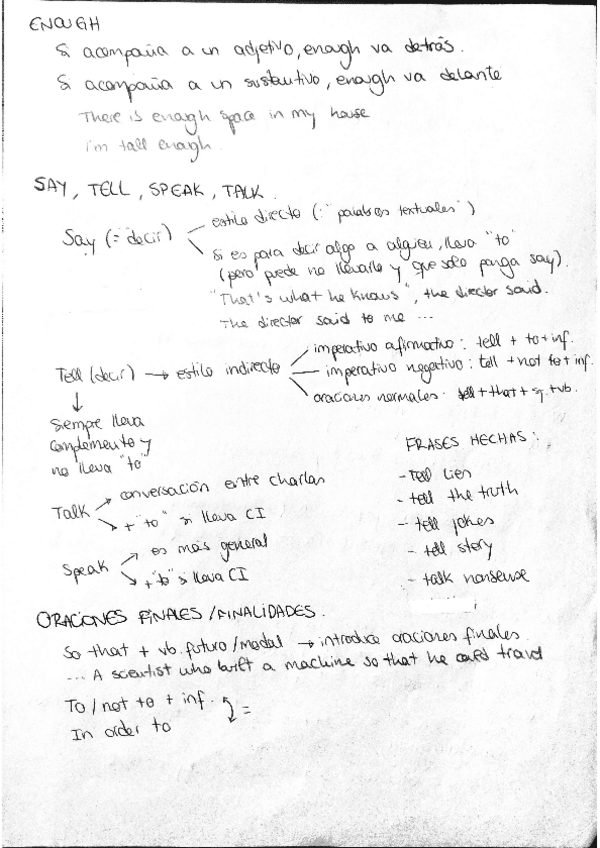 ENOUGH
Si acompaña a un adjetivo, enough va detrás.
Si acompaña a un sustantivo, enough va delante
There is enough space in my house
i'm tall enough.
SAY, TELL, SPEAK, TALK.
Say (= decir)
estilo directo (: "palabras textuales")
Si es para decir algo a alguien, lleva "to"
(pero puede no llevarlo y que solo ponga say).
"That's what he knows", the director said.
The director said to me ...
Tell (decir) → estilo indirecto
imperativo afirmativo: tell + to + inf.
imperativo negativo: tell + not to + inf.
oraciones normales: tell + that + sj. + vb.
↓
Siempre lleva
complemento y
no lleva "to"
FRASES HECHAS:
- Tell lies
- tell the truth
- tell jokes
- tell story
- talk nonsense
Talk
conversación entre charlas
+ "to" si lleva CI
Speak
es más general
+ "to" si lleva CI
ORACIONES FINALES / FINALIDADES.
So that + vb. futuro/modal → introduce oraciones finales.
... A scientist who built a machine so that he could travel
To / not to + inf.
In order to
=